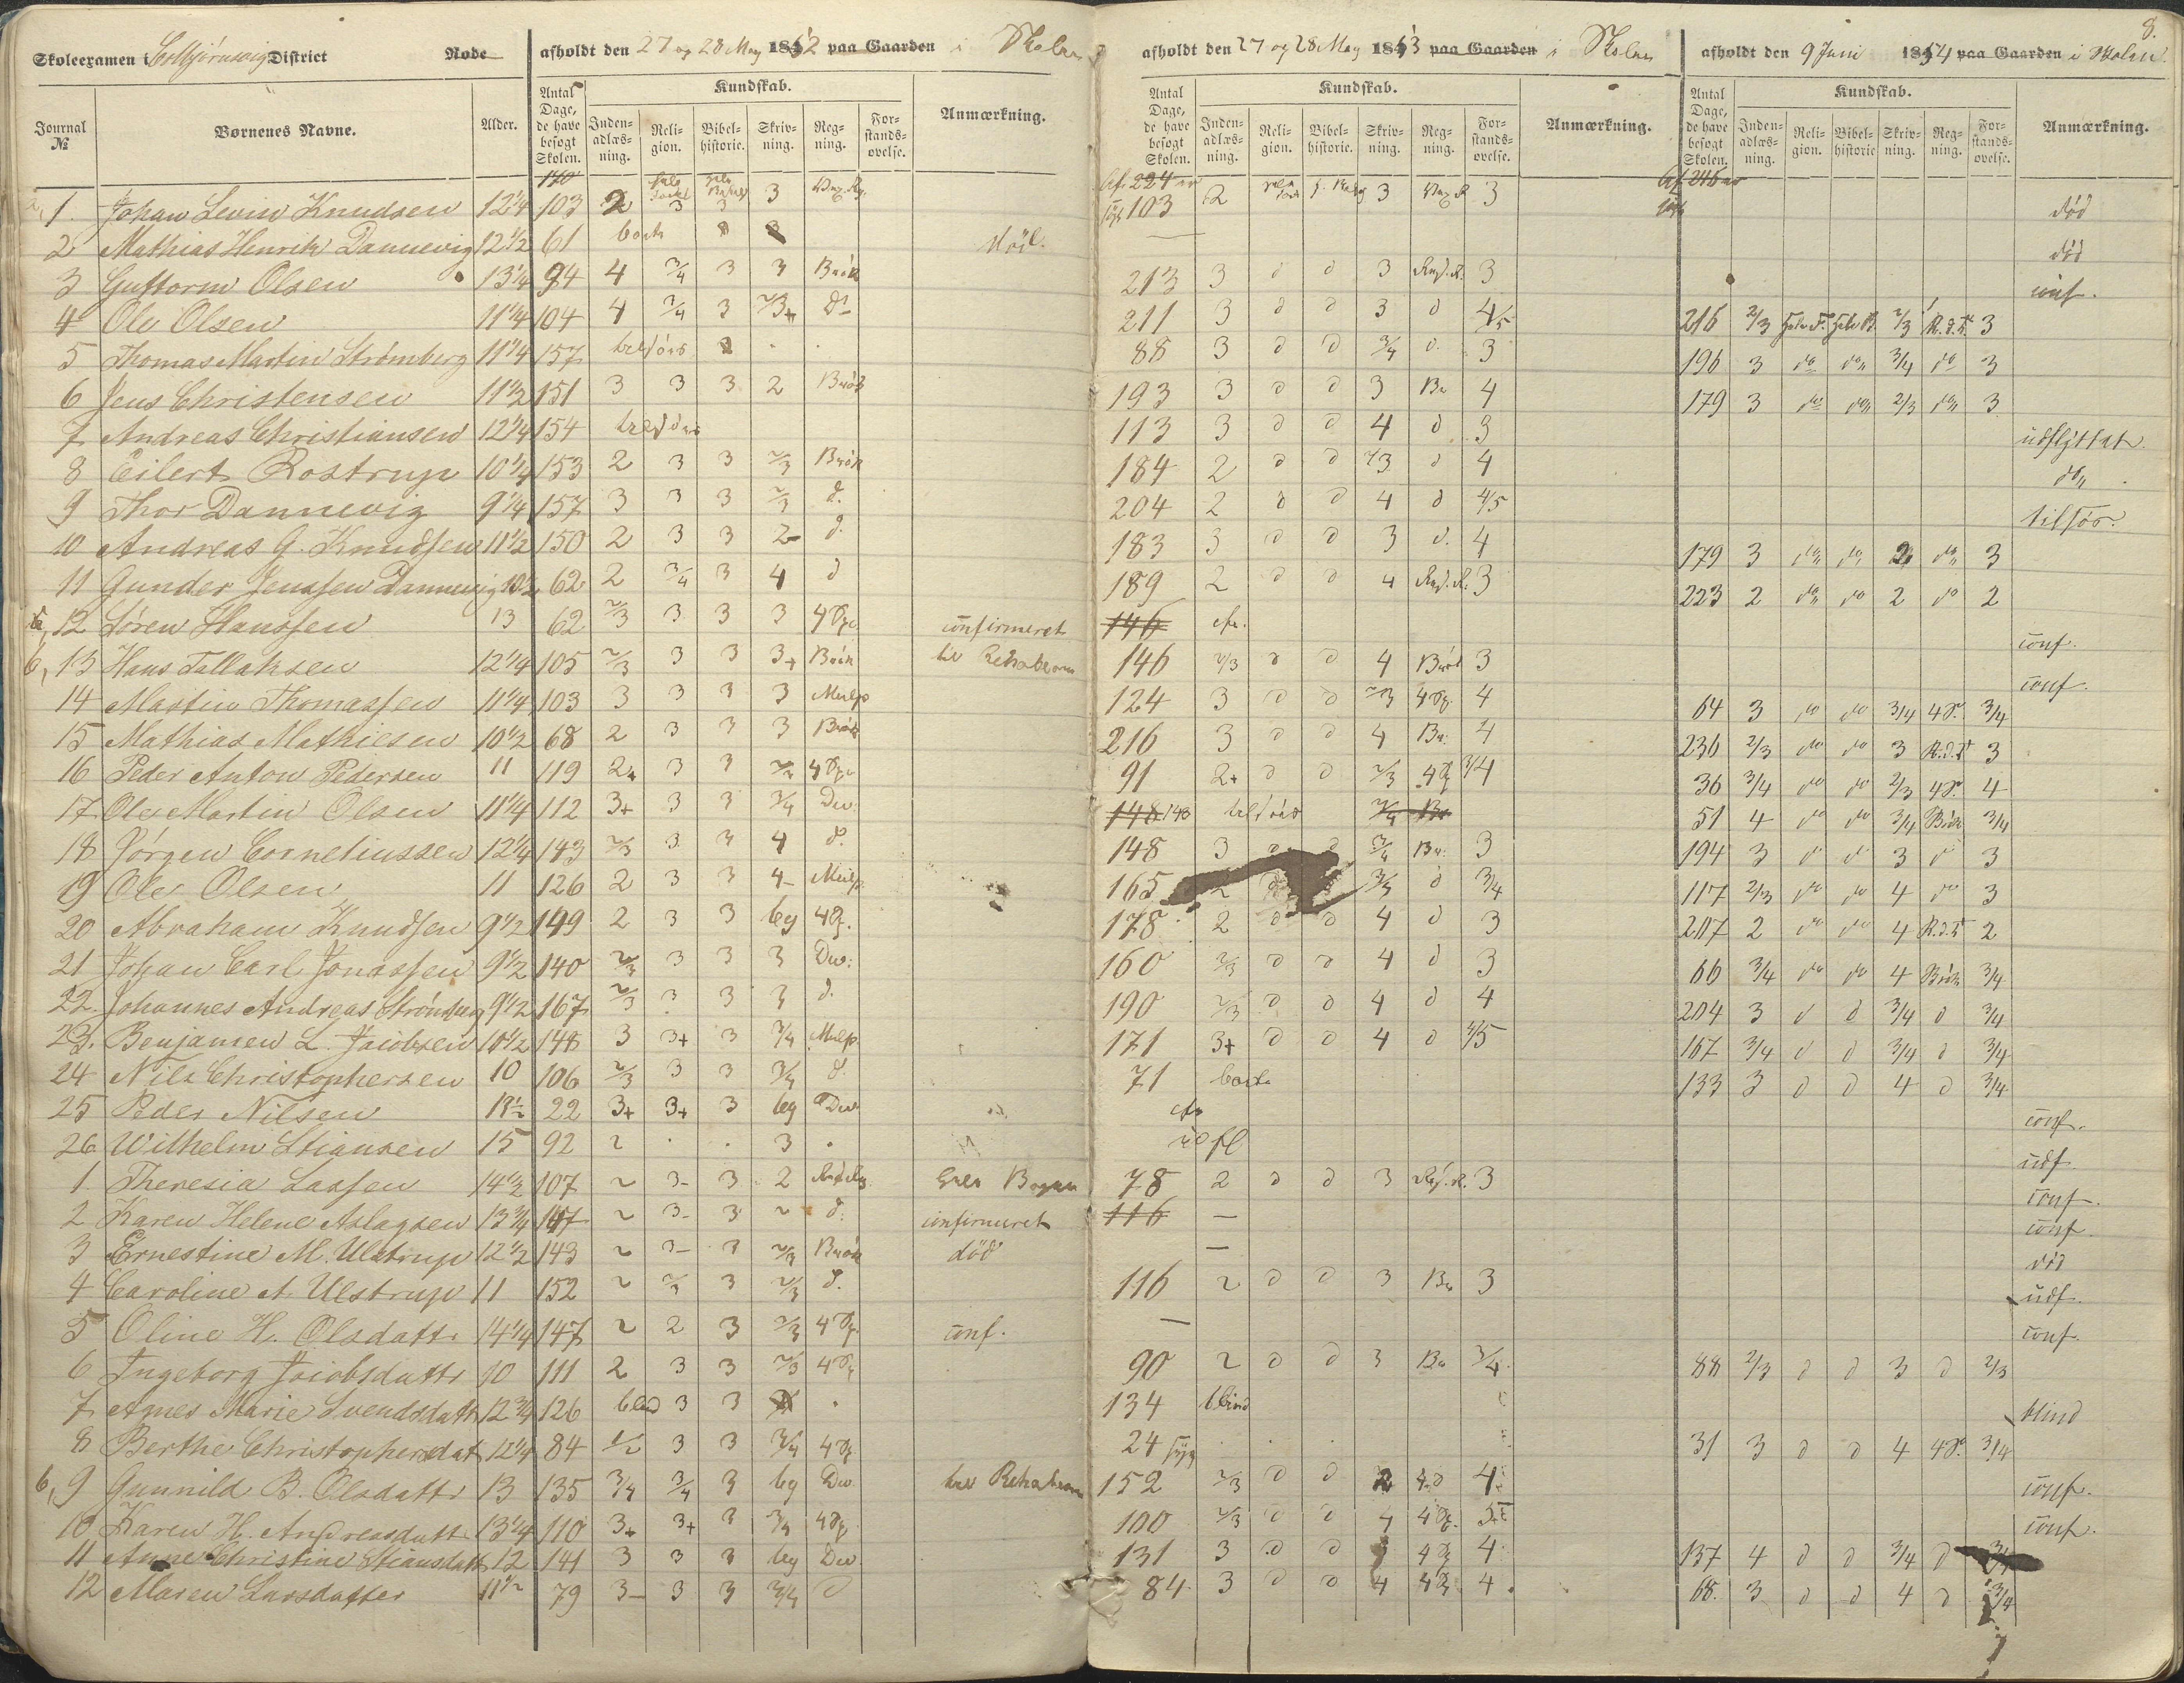 8.
Skoleexamen i Kolbjörnsvig District Rode afholdt den 27 og 28 May 1852 paa Gaarden i Skolen
afholdt den 27 og 28 May 1853 paa Gaarden i Skolen
afholdt den 9 Juni 1854 paa Gaarden i Skolen.
Journal № Børnenes Navne. Alder. Antal Dage, de have besøgt Skolen. Kundskab. Inden-adlæs-ning. Reli-gion. Bibel-historie. Skriv-ning. Reg-ning. For-stands-øvelse. Anmærkning.
Antal Dage, de have besøgt Skolen. Kundskab. Inden-adlæs-ning. Reli-gion. Bibel-historie. Skriv-ning. Reg-ning. For-stands-øvelse. Anmærkning.
Antal Dage, de have besøgt Skolen. Kundskab. Inden-adlæs-ning. Reli-gion. Bibel-historie Skriv-ning. Reg-ning. For-stands-øvelse. Anmærkning.
1. Johan Levin Knudsen 12 1/4 103 2 3 3 3 103 2 3 3 død
2 Mathias Henrik Dannevig 12 1/2 61 borte — død
3 Guttorm Olsen 13 1/4 94 4 3/4 3 3 Brök 213 3 d d 3 3 conf.
4 Ole Olsen 11 1/4 104 4 3/4 3 2/3+ do 211 3 d d 3 d 4/5 216 2/3 2/3 3
5 Thomas Martin Strömberg 11 1/4 157 tilsöes 88 3 d d 3/4 d. 3 196 3 do do 3/4 do 3
6 Jens Christensen 11 1/2 151 3 3 3 2 Brök 193 3 d d 3 Br 4 179 3 do do 2/3 do 3
7 Andreas Christiansen 12 1/4 154 tilsöes 113 3 d d 4 d 3 udflyttet
8 Eilert Rostrup 10 1/4 153 2 3 3 2/3 Brök 184 2 d d 2/3 d 4 do
9 Thor Dannevig 9 1/4 157 3 3 3 2/3 d. 204 2 d d 4 d 4/5 tilsöes
10 Andreas G. Knudsen 11 1/2 150 2 3 3 2- d. 183 3 d d 3 d. 4 179 3 do do 2 do 3
11 Gunder Jenssen Dannevig 10 1/2 62 2 3/4 3 4 d 189 2 d d 4 3 223 2 do do 2 do 2
12 Sören Hanssen 13 62 2/3 3 3 3 confirmeret 146 conf.
6, 13 Hans Tallaksen 12 1/4 105 2/3 3 3 3+ Brök 146 2/3 d d 4 Brök 3 conf.
14 Martin Thomassen 11 1/4 103 3 3 3 3 Mulp 124 3 d d 2/3 4 64 3 do do 3/4 3/4
15 Mathias Mathiesen 10 1/2 68 2 3 3 3 Brök 216 3 d d 4 Br. 4 236 2/3 do do 3 3
16 Peder Anton Pedersen 11 119 2+ 3 3 91 2+ d d 2/3 3/4 36 3/4 do do 2/3 4
17 Ole Martin Olsen 11 1/4 112 3+ 3 3 3/4 Div. 148 143 tilsöes 51 4 do do 3/4 Brök 3/4
18 Jörgen Corneliussen 12 1/4 143 2/3 3 3 4 d. 148 3 d d 3/4 Br. 3 194 3 d d 3 d 3
19 Ole Olsen 11 126 2 3 3 4- Mulp. 165 2 d 3/4 117 2/3 do do 4 do 3
20 Abraham Knudsen 9 1/2 149 2 3 3 beg 178 2 d d 4 d 3 207 2 do do 4 2
21 Johan Carl Jonassen 9 1/2 140 2/3 3 3 3 Div. 160 2/3 d d 4 d 3 66 3/4 do do 4 Brök 3/4
22. Johannes Andreas Strömberg 9 1/2 167 2/3 3 3 3 d. 190 2/3 d d 4 d 4 204 3 d d 3/4 d 3/4
23. Benjamen L. Jacobsen 10 1/2 148 3 3+ 3 3/4 Mulp 171 3+ d d 4 d 4/5 167 3/4 d d 3/4 d 3/4
24 Nils Christophersen 10 106 2/3 3 3 3/4 d. 71 borte 133 3 d d 4 d 3/4
25 Peder Nilsen 22 3+ 3+ 3 beg Div conf.
26 Wilhelm Stiansen 15 92 2 . . 3 . udfl udf.
1. Theresia Lassen 14 1/2 107 2 3- 3 2 78 2 d d 3 3 conf.
2 Karen Helene Aslagsen 13 3/4 2 3- 3 2 d. confirmeret 116 — conf.
3 Ernestine M. Ulstrup 12 1/2 143 2 3- 3 2/3 Brök död — död
4 Caroline A. Ulstrup 11 152 2 2/3 3 2/3 d. 116 2 d d 3 Br 3 udf.
5 Oline H. Olsdattr 14 1/4 147 2 2 3 2/3 conf. — conf.
6 Ingeborg Jacobsdattr 10 111 2 3 3 2/3 90 2 d d 3 Br 3/4 88 2/3 d d 3 d 2/3
7 Agnes Marie Svendsdattr 12 3/4 126 blind 3 3 134 blind blind
8 Berthe Christophersdat 12 1/4 84 1/2 3 3 3/4 24 syg 31 3 d d 4 3/4
6, 9 Gunnild B. Olsdattr 13 135 3/4 3/4 3 beg Div. 152 2/3 d d 2 4 conf.
10 Karen H. Andreasdattr 13 1/4 110 3+ 3+ 3 3/4 100 2/3 d d 4 conf.
11 Anne Christine Stiansdattr 12 141 3 3 3 beg Div 131 3 d d 4 137 4 d d 3/4 d 3/4
12 Maren Larsdatter 11 1/2 79 3- 3 3 3/4 d 84 3 d d 4 4 68. 3 d d 4 d 3/4